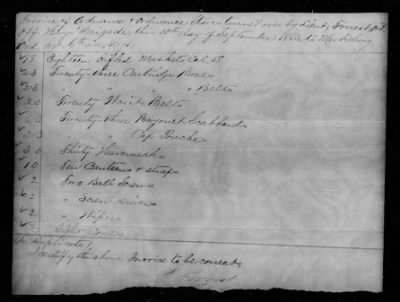 Invoice of Ordnance & Ordnance Stores turned over by Lieut Forrest Ord
Off Hays Brigade, this 10th day of September 1862 to Maj
Regt La
18 Eighteen Rifled Muskets Cal 58
23 Twenty-three Cartridge Boxes
23 " " " Belts
20 Twenty Waist Belts
23 Twenty three Bayonet Scabbards
23 " " Cap Pouches
30 Thirty Haversacks
10 Ten Canteens & straps
2 Two Ball Screws
2 " Screw Drivers
2 " Wipers
Eight
In duplicate
I certify the above Invoice to be correct